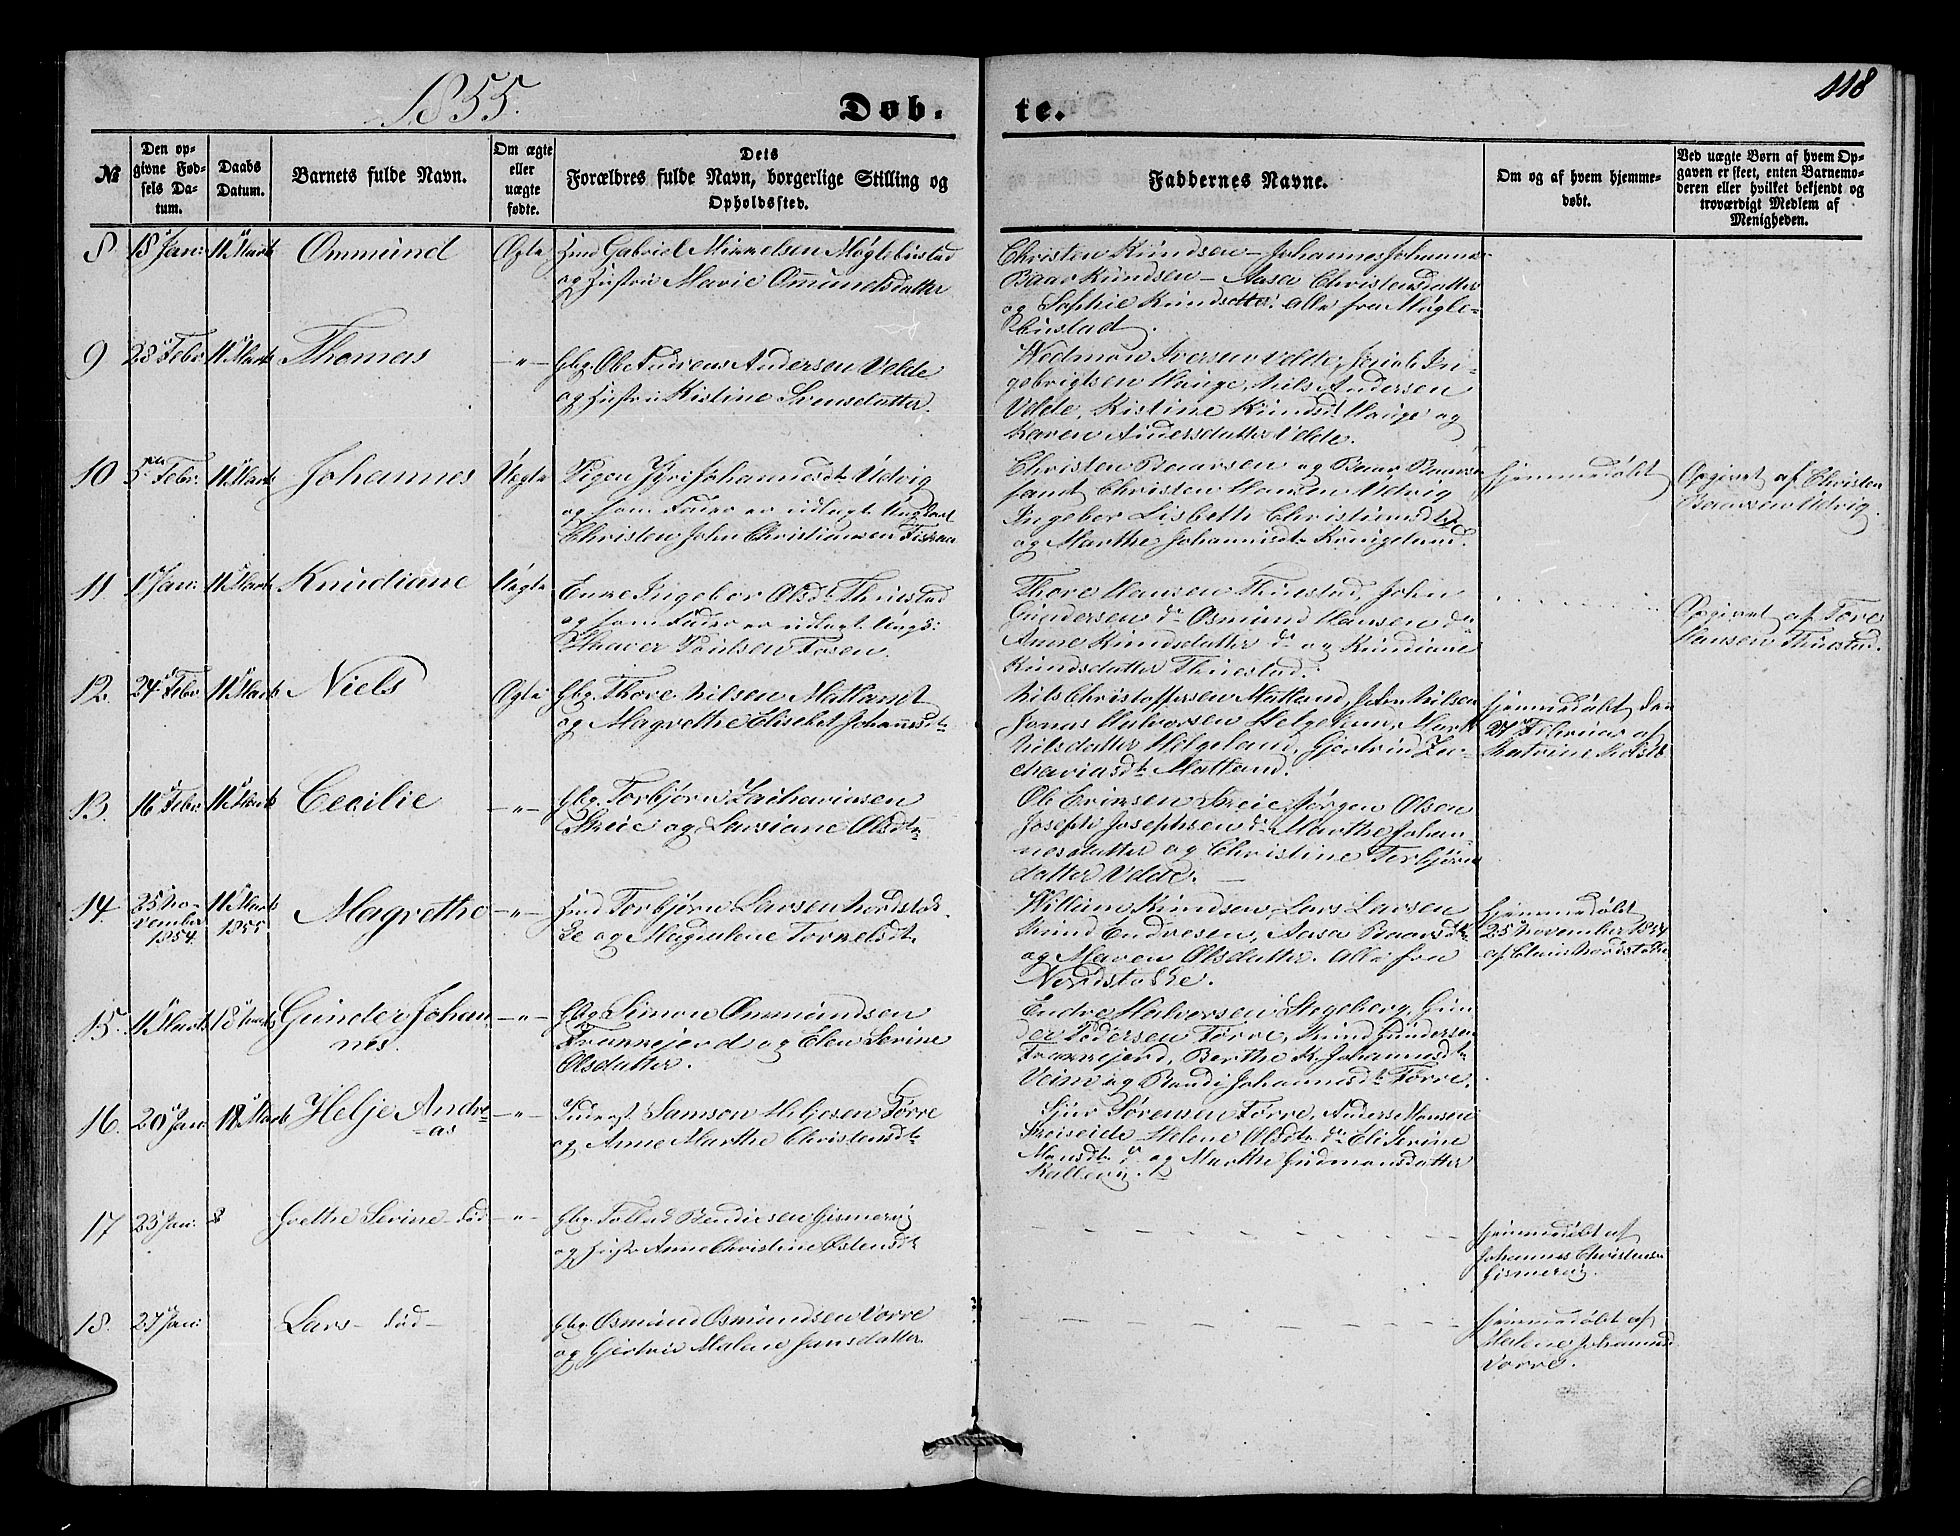 1855.
Døb. te.
118
№
Den opgivne Fødsels Datum.
Daabs Datum.
Barnets fulde Navn.
Om ægte eller uægte fødte.
Dets Forældres fulde Navn, borgerlige Stilling og Opholdssted.
Faddernes Navne.
Om og af hvem hjemmedøbt.
Ved uægte Børn af hvem Opgaven er skeet, enten Barnemoderen eller hvilket bekjendt og troværdigt Medlem af Menigheden.
8. 18 Jan: 11 Marts Ommund Ægte Gabriel Mikkelsen Møglebustad
og Hustru Marie Omundsdatter
Christen Knudsen - Johannes
Baar Knudsen - Aasa Christensdatter
og Sophie Knudsdatter. alle fra Møgle-
bustad.
9 28 Febr 11 Marts Thomas -"- Gbr. Ole Andreas Andersen Velde
og Hustru Kistine Svensdatter.
Wedmon Iversen Velde, In-
gebrigtsen Hauge, Nils Andersen
Velde, Kistine Knudsd. Hauge og
Karen Andersdatter Velde.
10 5 Febr. 11 Marts Johannes Uægte Pigen Johannesdt. Udvig
og som Fader er udlagt Ungkarl
Christen John Christiansen
Christen Baarsen og Baar Baarsen
samt Christen Hansen Udvig
Ingebor Lisbeth Christensdtr.
og Marthe Johannesdt.
Hjemmedøbt
Opgivet af Christen
Baarsen Udvig.
11 Jan: 11 Marts Knudiane Uægte Enke Ingebor Olsdt. Thuestad
og som Fader er udlagt Ungk:
Haaver Poulsen Fosen.
Thore Hansen Thuestad, John
Gundersen do Osmund Hansen do
Anne Knudsdatter do og Knudiane
Knudsdatter Thuestad.
Opgivet af Tore
Hansen Thuestad.
12. 24 Febr 11 Marts Niels Ægte Gbr. Thore Nilsen Matland
og Magrethe Elisebet Johannesdt.
Nils Christoffersen Matland, John Nilsen
Jonas Halvorsen Helgeland,
Nilsdatter Helgeland, Gjertrud Za-
chariasdt. Matland.
Hjemmedøbt den
27 Februar af
13. 16 Febr. 11 Marts Cecilie -"- Gbr. Torbjørn Zachariasen
Skeie og Larsiane Olsdtr.
Ole Eriksen Skeie, Jørgen Olsen
Joseph Josephsen do Marthe Johan-
nesdatter og Christine Torbjørns
datter Velde. -
14. 25 No-
vember
1854. 11 Marts
1855 Magrethe -"- Torbjørn Larsen Nordstok-
ke og Magdalene Torkelsdt.
Willum Knudsen, Lars Larsen
Knud Endresen, Aasa Baarsdtr.
og Maren Olsdatter. Alle fra
Nordstokke.
Hjemmedøbt
25 November 1854
15. 11 Marts 18 Marts Gunder Johan
nes. -"- Gbr. Simon Ommundsen
Frakkejord og Elen Serine
Olsdatter.
Endre Halvorsen Stegeberg, Gun
der Pedersen Førre, Knud Gundersen
Frakkejord, Berthe K. Johannesdt.
Veim og Randi Johannesdt. Førre.
16. 20 Jan 18 Marts Helje Andre
as -"- Samson Heljesen Førre
og Anne Marthe Christensdt.
Sjur Sørensen Førre, Anders Monsen
Skeiseide Helene Olsdtr. do Eli Serine
Monsdt. do og Marthe Gudmonsdatter
17 23 Jan: Grethe Serine - død -"- Gbr. Tollak Bendiksen Gismervig
og Hust. Anne Christine Østensdt.
Hjemmedøbt af
Johannes Christensen
Gismervig.
18. 27 Jan: Lars - død - Gbr. Osmund Osmundsen Vorre
og Gjertrud Malene Jansdatter.
Hjemmedøbt af
Helene Johannesd.
Vorre.